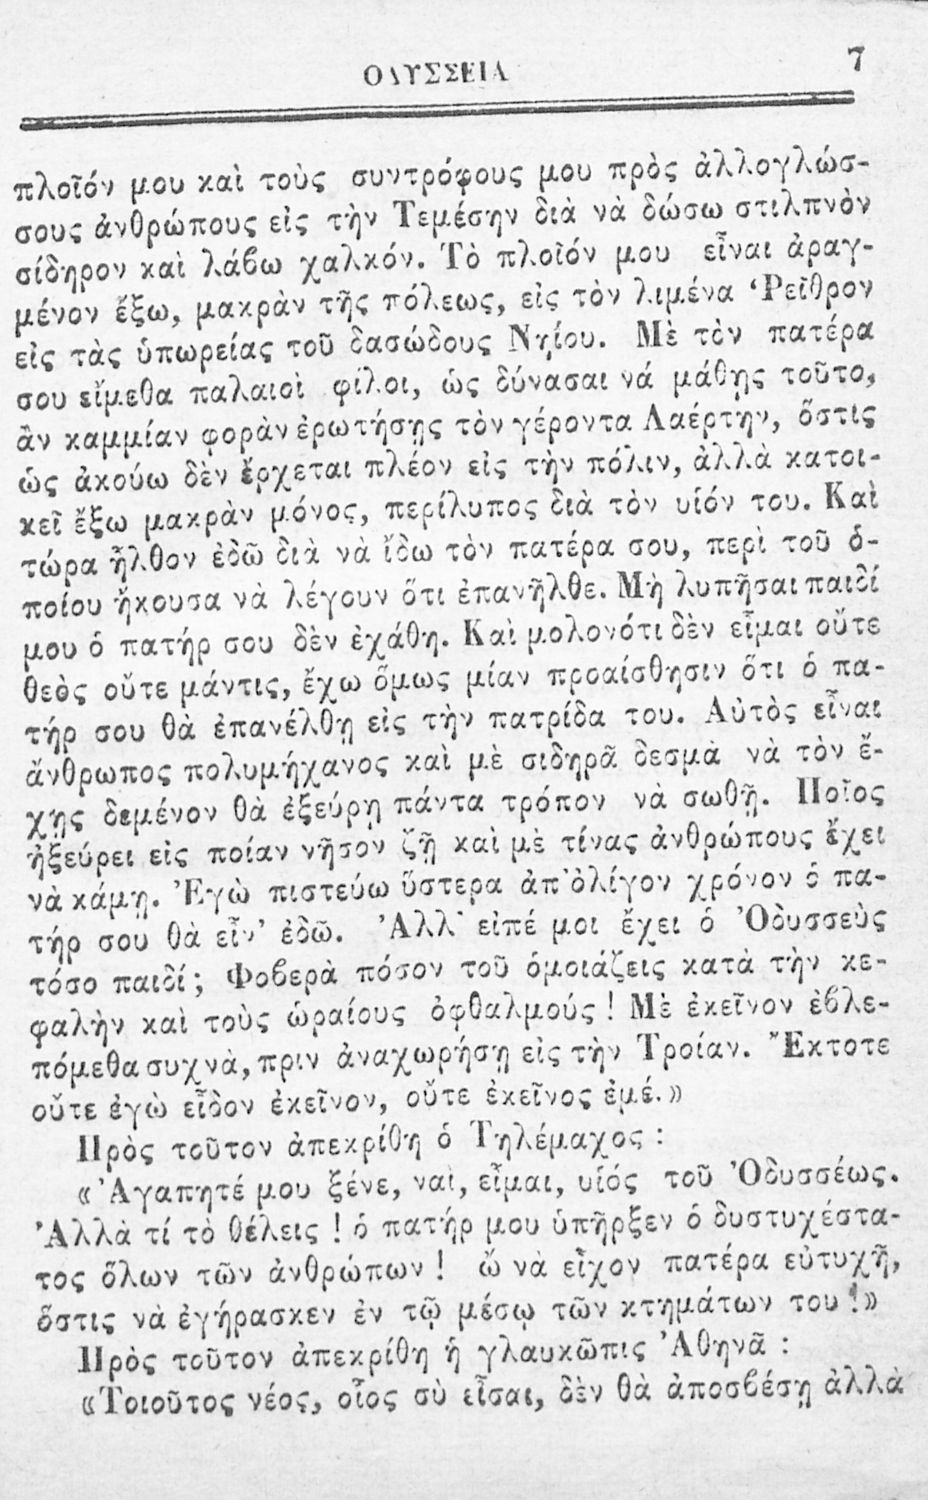 ΟΔΥΣΣΕΙΑ 7
πλοῖόν μου καὶ τοὺς συντρόφους μου πρὸς ἀλλογλώσ-
σους ἀνθρώπους εἰς τὴν Τεμέσην διὰ νὰ δώσω στιλπνὸν
σίδηρον καὶ λάβω χαλκόν. Τὸ πλοῖόν μου εἶναι ἀραγ-
μένον ἔξω, μακρὰν τῆς πόλεως, εἰς τὸν λιμένα ‘Ρεῖθρον
εἰς τὰς ὑπωρείας τοῦ δασώδους Νηίου. Μὲ τὸν πατέρα
σου εἴμεθα παλαιοὶ φίλοι, ὡς δύνασαι νά μάθῃς τοῦτο,
ἂν καμμίαν φορὰν ἐρωτήσῃς τὸν γέροντα Λαέρτην, ὅστις
ὡς ἀκούω δὲν ἔρχεται πλέον εἰς τὴν πόλιν, ἀλλὰ κατοι-
κεῖ ἔξω μακρὰν μόνος, περίλυπος διὰ τὸν υἱόν του. Καὶ
τώρα ἦλθον ἐδῶ διὰ νὰ ἴδω τὸν πατέρα σου, περὶ τοῦ ὁ-
ποίου ἤκουσα νὰ λέγουν ὅτι ἐπανῆλθε. Μὴ λυπῆσαι παιδί
μου ὁ πατήρ σου δὲν ἐχάθη. Καὶ μολονότι δὲν εἶμαι οὔτε
θεὸς οὔτε μάντις, ἔχω ὅμως μίαν προαίσθησιν ὅτι ὁ πα-
τήρ σου θὰ ἐπανέλθῃ εἰς τὴν πατρίδα του. Αὐτὸς εἶναι
ἄνθρωπος πολυμήχανος καὶ μὲ σιδηρᾶ δεσμὰ νὰ τὸν ἔ-
χῃς δεμένον θὰ ἐξεύρῃ πάντα τρόπον νὰ σωθῇ. Ποῖος
ἠξεύρει εἰς ποίαν νῆσον ζῇ καὶ μὲ τίνας ἀνθρώπους ἔχει
νὰ κάμῃ. Ἐγὼ πιστεύω ὕστερα ἀπ᾽ ὀλίγον χρόνον ὁ πα-
τήρ σου θὰ εἶν’ ἐδῶ. Ἀλλ᾽ εἰπέ μοι ἔχει ὁ Ὀδυσσεὺς
τόσο παιδί; Φοβερὰ πόσον τοῦ ὁμοιάζεις κατὰ τὴν κε-
φαλὴν καὶ τοὺς ὡραίους ὀφθαλμούς! Μὲ ἐκεῖνον ἐβλε-
πόμεθα συχνὰ, πριν ἀναχωρήσῃ εἰς τὴν Τροίαν. Ἔκτοτε
οὔτε ἐγὼ εἶδον ἐκεῖνον, οὔτε ἐκεῖνος ἐμέ.»
Πρὸς τοῦτον ἀπεκρίθη ὁ Τηλέμαχος:
«Ἀγαπητέ μου ξένε, ναὶ, εἶμαι, υἱός τοῦ Ὀδυσσέως.
Ἀλλὰ τί τὸ θέλεις! ὁ πατήρ μου ὑπῆρξεν ὁ δυστυχέστα-
τος ὅλων τῶν ἀνθρώπων! ὤ νὰ εἶχον πατέρα εὐτυχῆ,
ὅστις νὰ ἐγήρασκεν ἐν τῷ μέσῳ τῶν κτημάτων του!»
Πρὸς τοῦτον ἀπεκρίθη ἡ γλαυκῶπις Ἀθηνᾶ:
«Τοιοῦτος νέος, οἷος σὺ εἶσαι, δὲν θὰ ἀποσβέσῃ ἀλλὰ